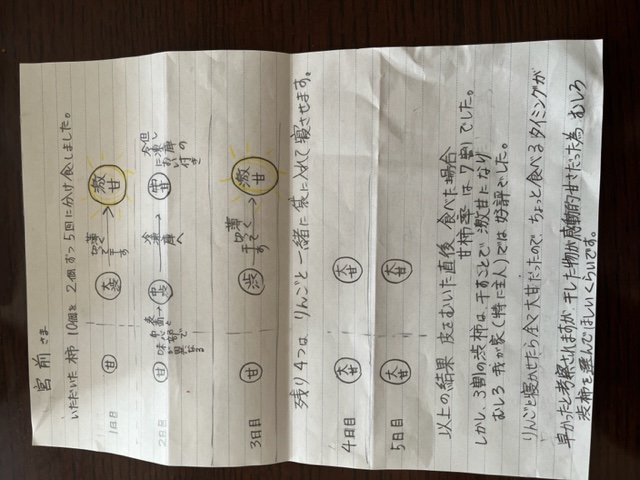 宮前さま
いただいた柿10個を2個ずつ5回に分け食しました。
1日目 甘 大渋 → 激甘
干す
2日目 甘 渋 → 甘
中心部で
味が異なる
冷蔵庫へ
但し
におい付き
3日目 甘 渋 → 激甘
干す
残り4つは、りんごと一緒に袋に入れて寝させます。
4日目 大甘 大甘
5日目 大甘 大甘
以上の結果 皮をむいた直後食べた場合
甘柿率は7割でした。
しかし、3割の渋柿は、干すことで激甘になり
むしろ我が家(特に主人)では好評でした。
りんごと寝かせたら全て大甘だったので、ちょっと食べるタイミングが
早かったと考察されますが、干した物が感動的甘さだった為むしろ
渋柿を選んでほしいくらいです。